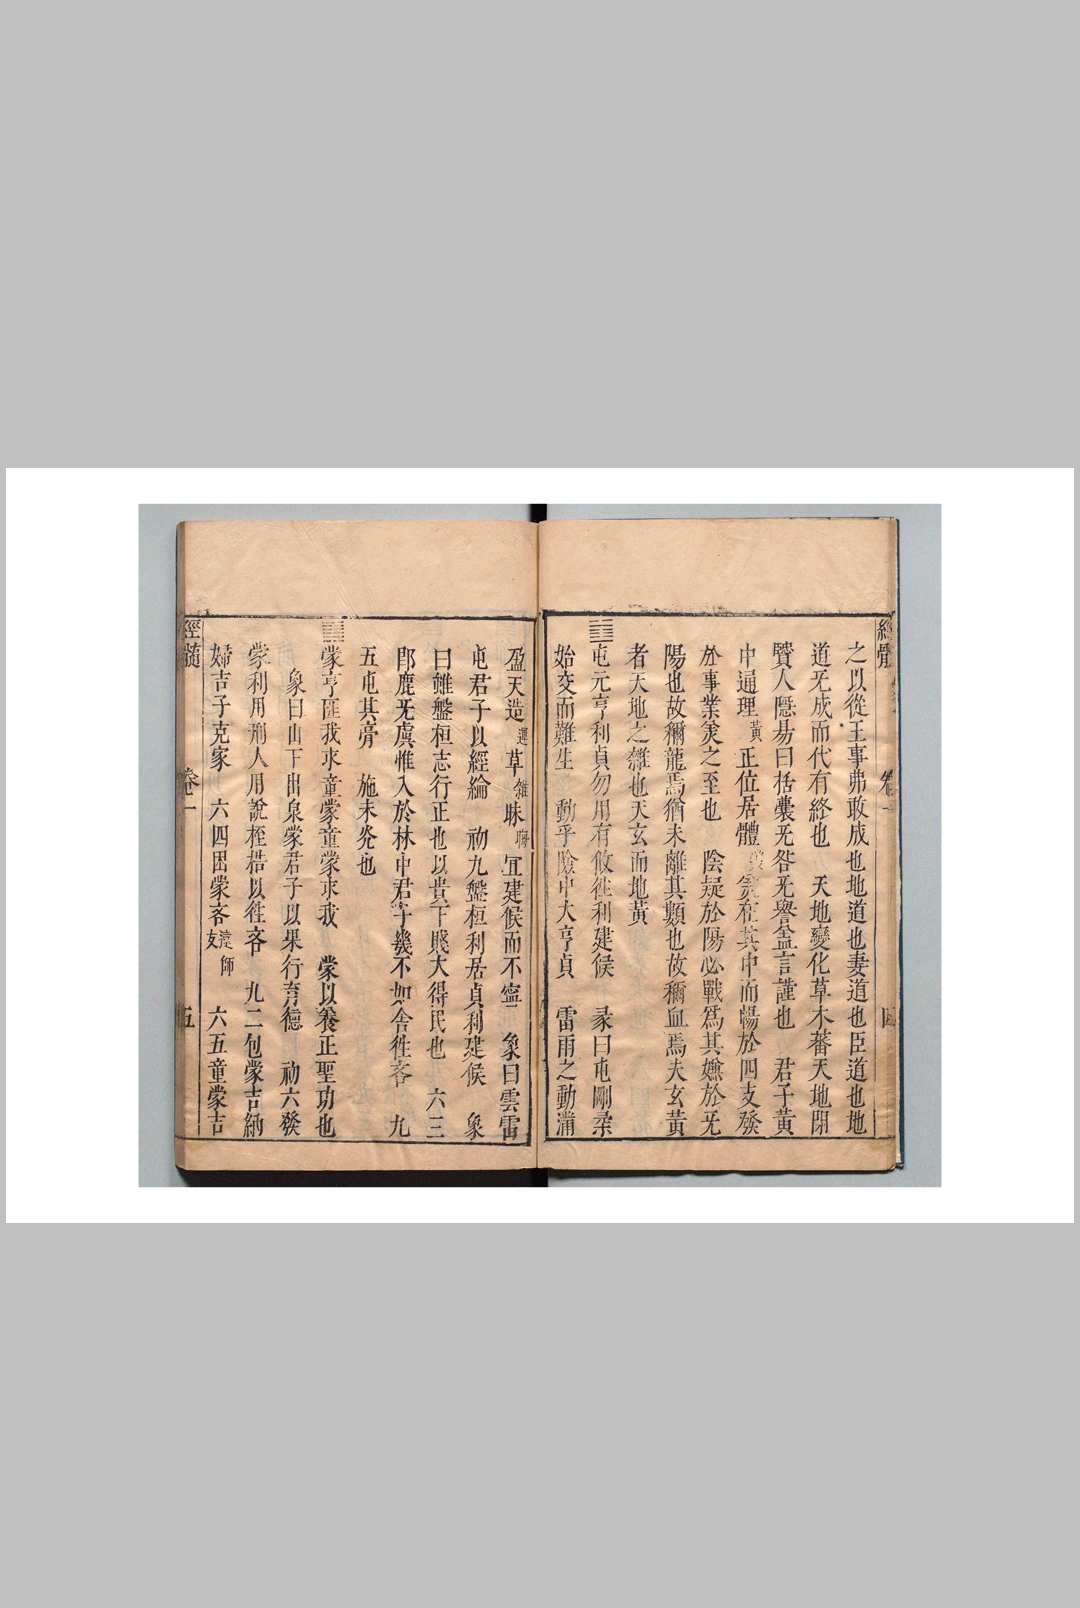 之以從王事弗敢成也地道也妻道也臣道也地
道无成而代有終也　天地變化草木蕃天地閉
賢人隱易曰括囊无咎无譽盖言謹也　君子黃
中通理黃正位居體美在其中而暢於四支發
於事業美之至也　陰疑於陽必戰爲其嫌於无
陽也故稱龍焉猶未離其類也故稱血焉夫玄黃
者天地之雜也天玄而地黃
䷂屯元亨利貞勿用有攸徃利建侯　彖曰屯剛柔
始交而難生　動乎險中大亨貞　雷雨之動滿
盈天造運草雜昧晦宜建侯而不寧　象曰雲雷
屯君子以經綸　初九盤桓利居貞利建侯　象
曰雖盤桓志行正也以貴下賤大得民也　六三
即鹿无虞惟入於林中君子幾不如舍徃吝　九
五屯其膏　施未光也
䷃蒙亨匪我求童蒙童蒙求我　蒙以養正聖功也
象曰山下出泉蒙君子以果行育德　初六發
蒙利用刑人用說桎梏以徃吝　九二包蒙吉納
婦吉子克家　六四困蒙吝遠師友　六五童蒙吉
經髓
卷一
五
經髓
卷一
四